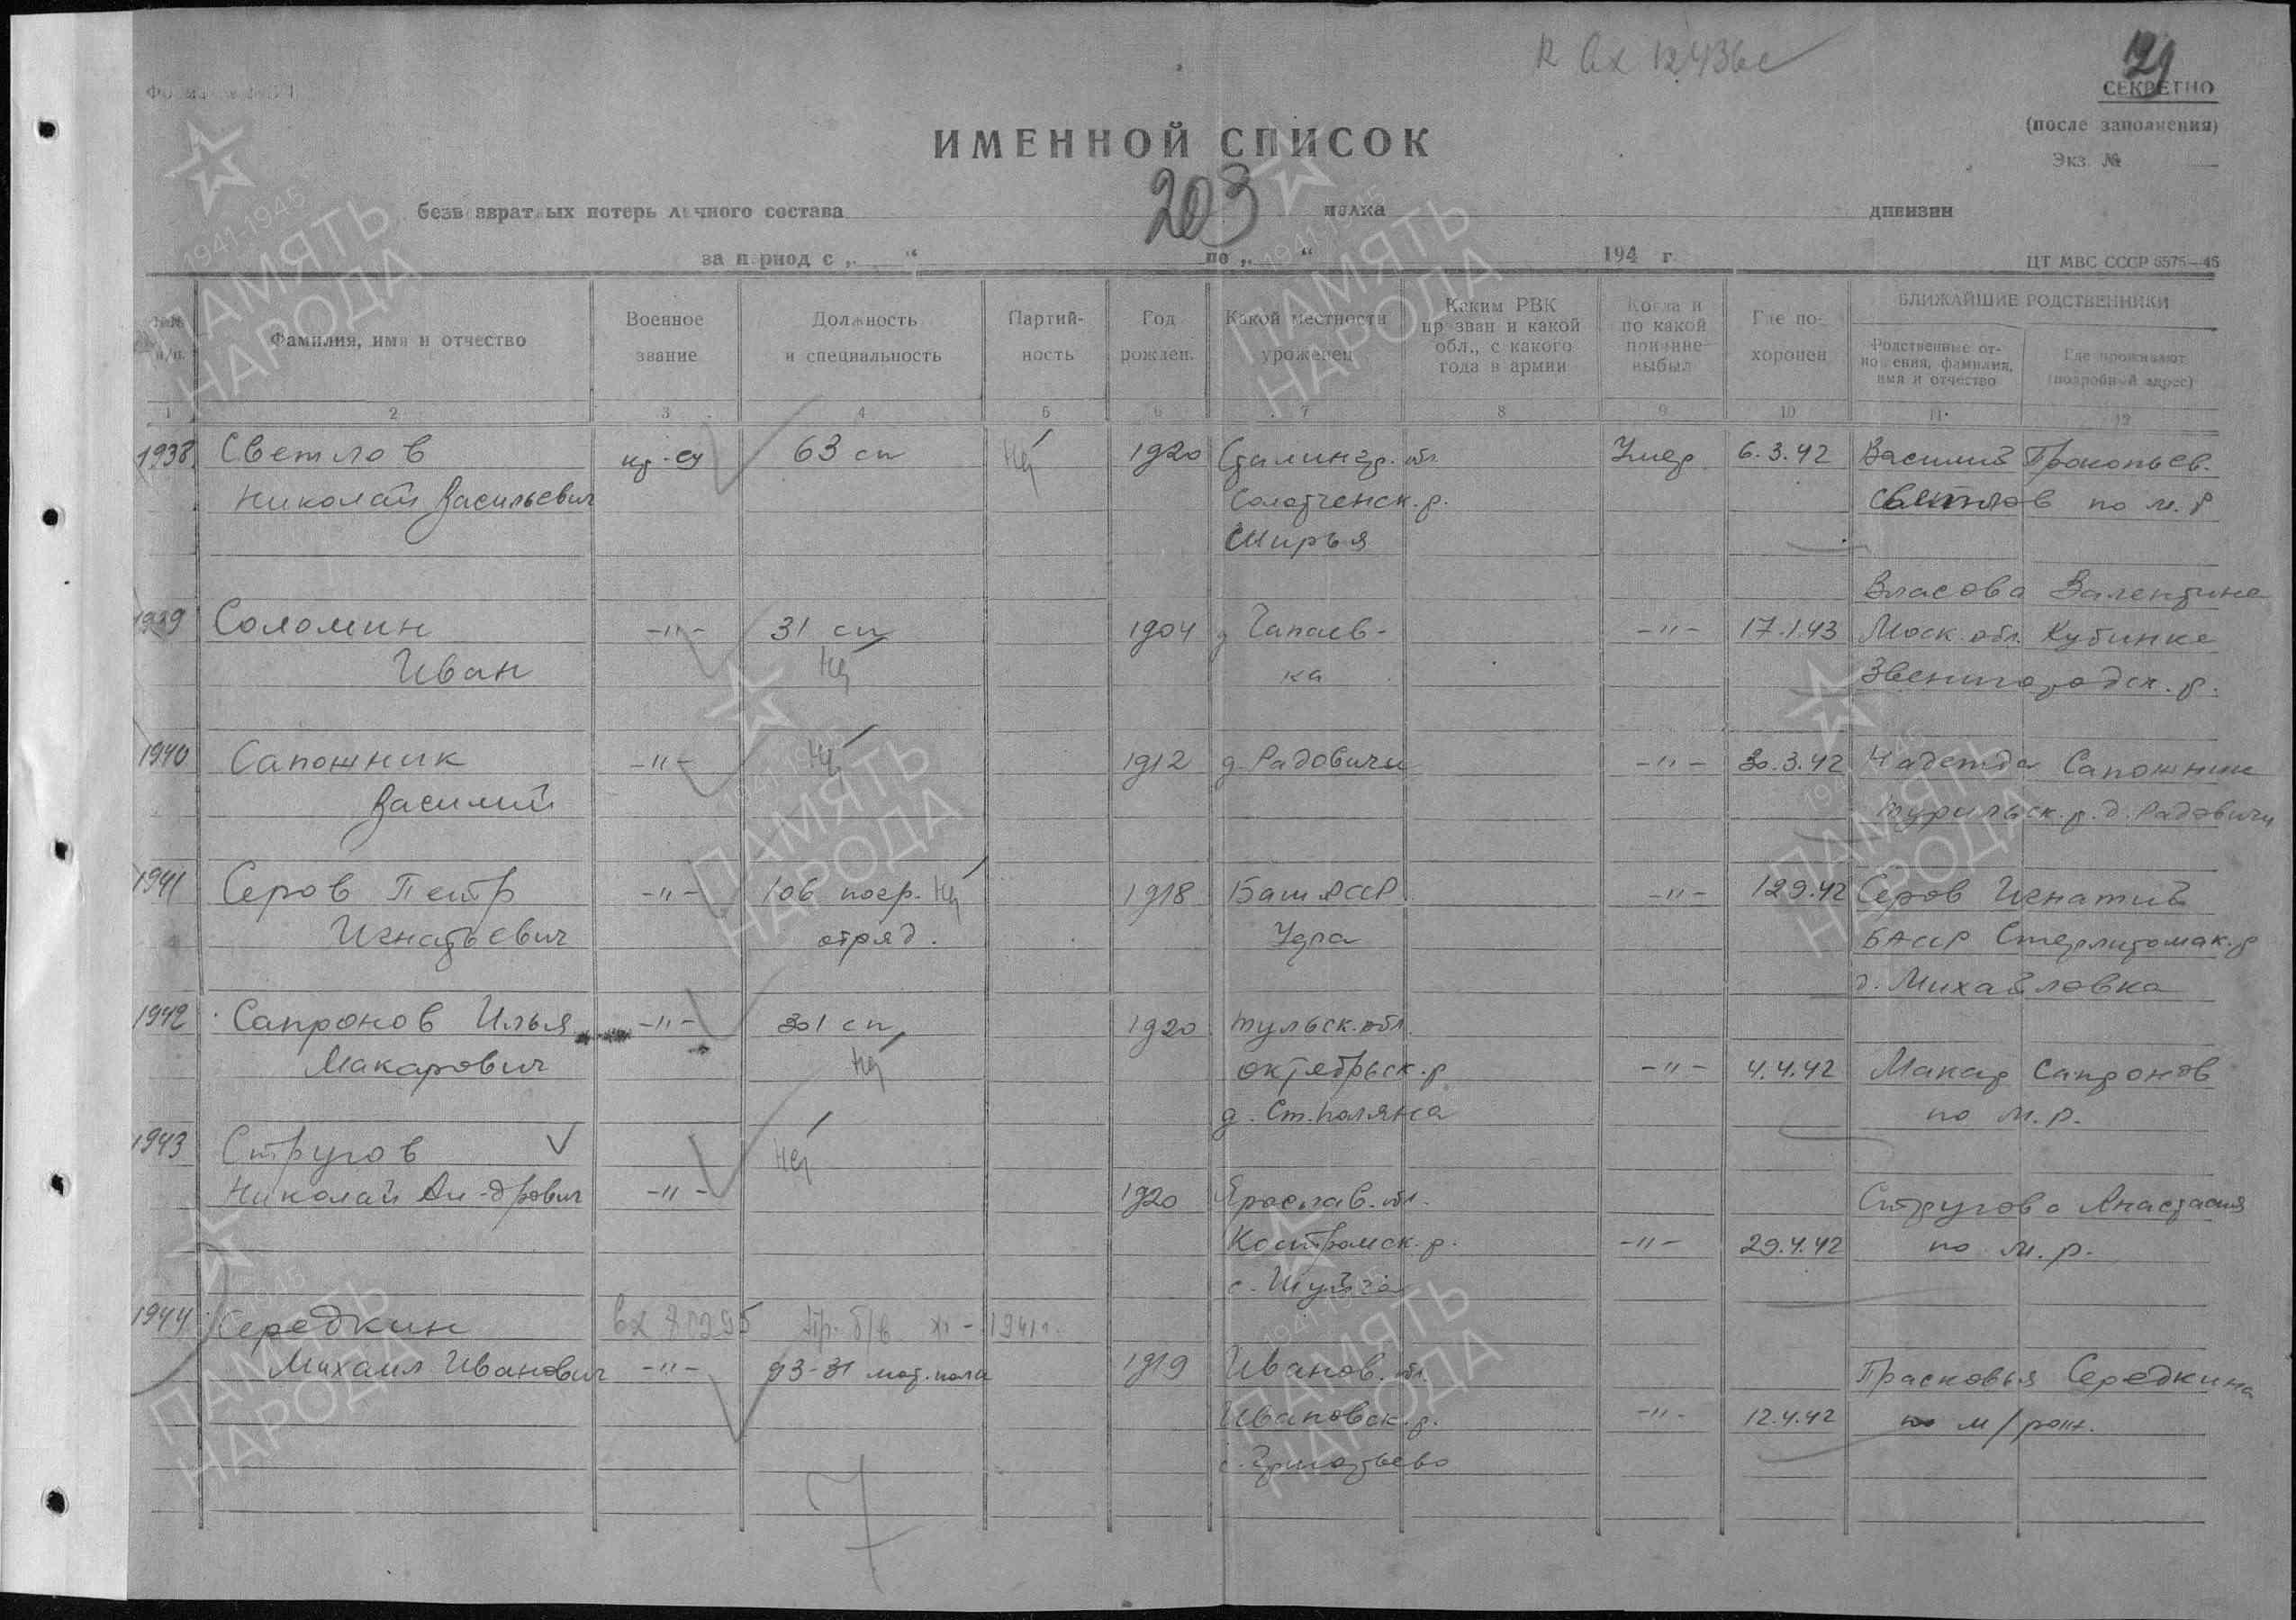 к вх 12436с
129
СЕКРЕТНО
(после заполнения)
Экз. №
ИМЕННОЙ СПИСОК
безвозвратных потерь личного состава 203 полка дивизии
за период с „ “ по „ “ 194 г.
ЦТ МВС СССР 6575—46
№№ п/п. Фамилия, имя и отчество Военное звание Должность и специальность Партийность Год рожден. Какой местности уроженец Каким РВК призван и какой обл., с какого года в армии Когда и по какой причине выбыл Где похоронен БЛИЖАЙШИЕ РОДСТВЕННИКИ
Родственные отношения, фамилия, имя и отчество Где проживают (подробный адрес)
1 2 3 4 5 6 7 8 9 10 11 12
1938 Светлов кр-ец 63 сп 1920 Сталингр. обл. Умер 6.3.42 Василий Прокопьев.
Николай Васильевич Солотченск. р. Светлов по м. р
Ширья
Власова Валентина
1939 Соломин -"- 31 сп 1904 д Чапаев- -"- 17.1.43 Моск. обл. Кубинка
Иван ка Звенигородск. р.
1940 Сапожник -"- 1912 д. Радовичи -"- 30.3.42 Надежда Сапожник
Василий Турильск. р. д. Радовичи
1941 Серов Петр -"- 106 погр. 1918 Баш АССР -"- 12.9.42 Серов Игнатий
Игнатьевич отряд. Уфа БАССР Стерлитомак. р
д. Михайловка
1942 Сапронов Илья -"- 301 сп 1920 Тульск. обл.
Макарович Октябрьск. р -"- 4.4.42 Макар Сапронов
д. Ст. поляна по м. р.
1943 Стругов
Николай Ан-дрович -"- 1920 Ярослав. обл. Стругова Анастасия
Костромск. р. -"- 29.4.42 по м. р.
с. Шунга
1944 Середкин вх 81295 пр. б/в XI - 1941 г.
Михаил Иванович -"- 93-31 мот. полк 1919 Иванов. обл. Прасковья Середкина
Ивановск. р. -"- 12.4.42 по м/рож.
7
1941-1945
ПАМЯТЬ
НАРОДА